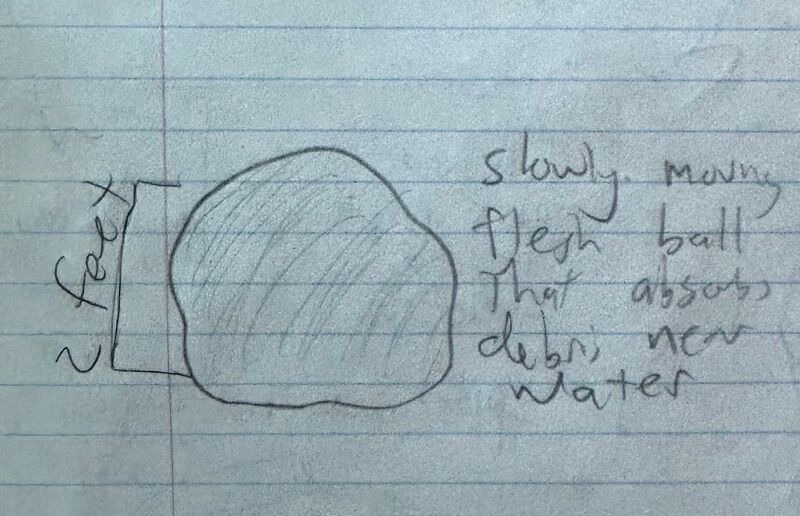 2 feet
slowly moving
flesh ball
That absorbs
debris near
water